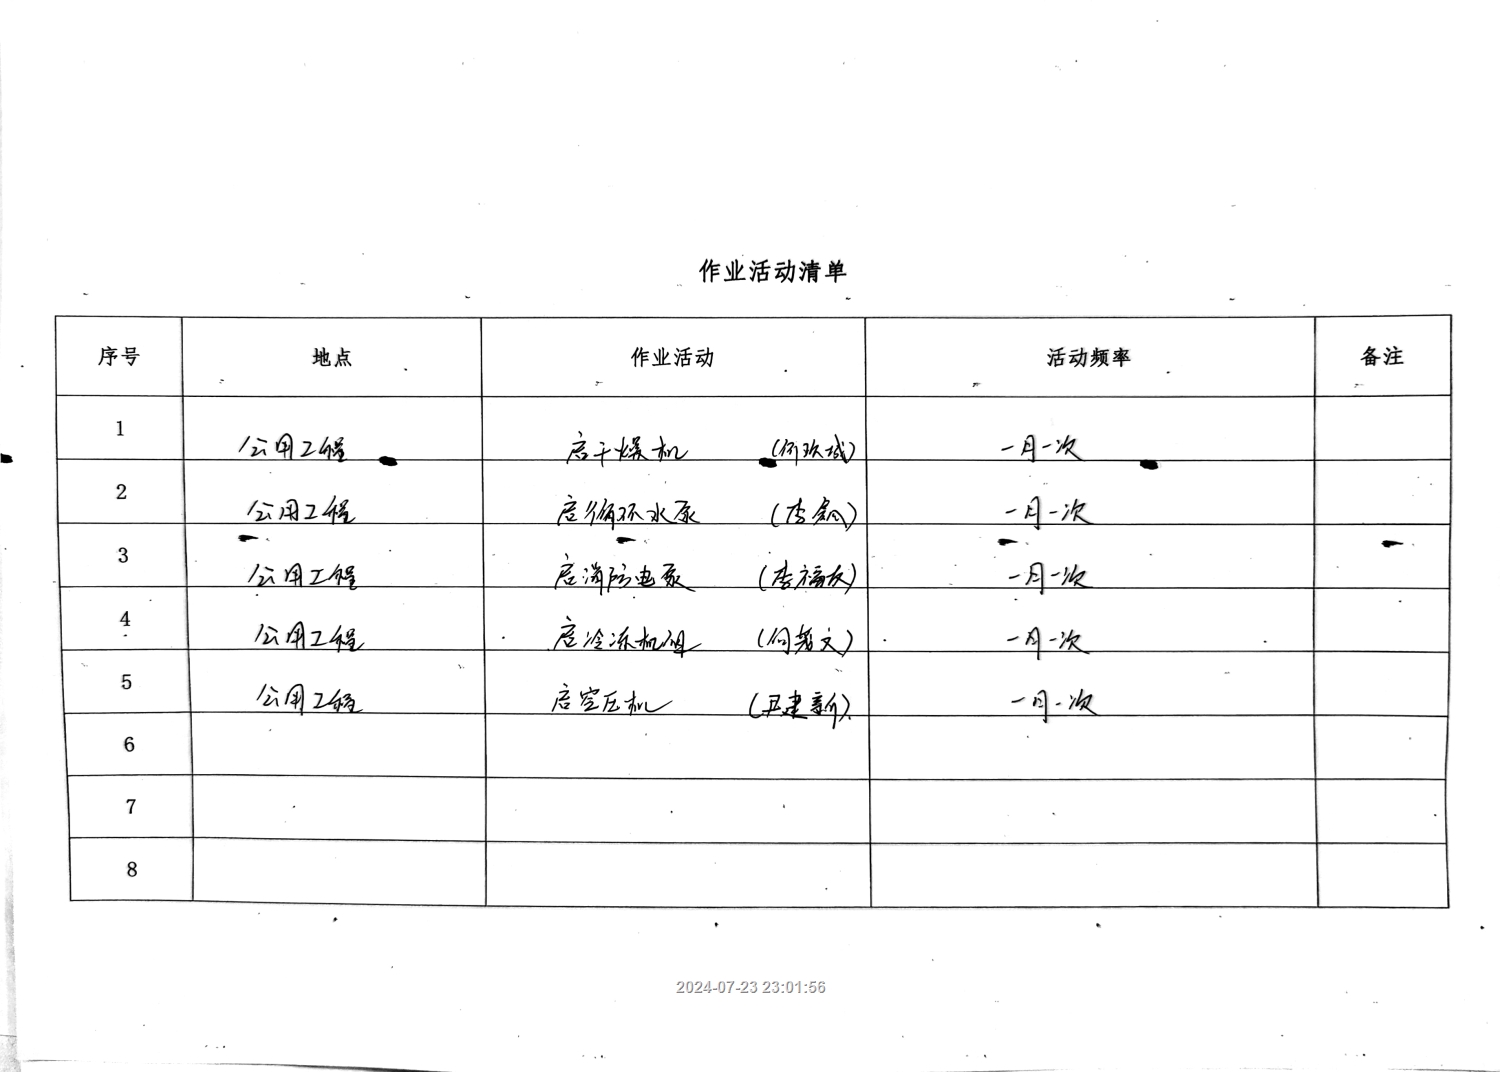 作业活动清单
序号 地点 作业活动 活动频率 备注
1 公用工程 启干燥机 一月一次
2 公用工程 启循环水泵 一月一次
3 公用工程 启消防电泵 (李福友) 一月一次
4 公用工程 启冷冻机组 一月一次
5 公用工程 启空压机 (尹建新) 一月一次
6
7
8
2024-07-23 23:01:56